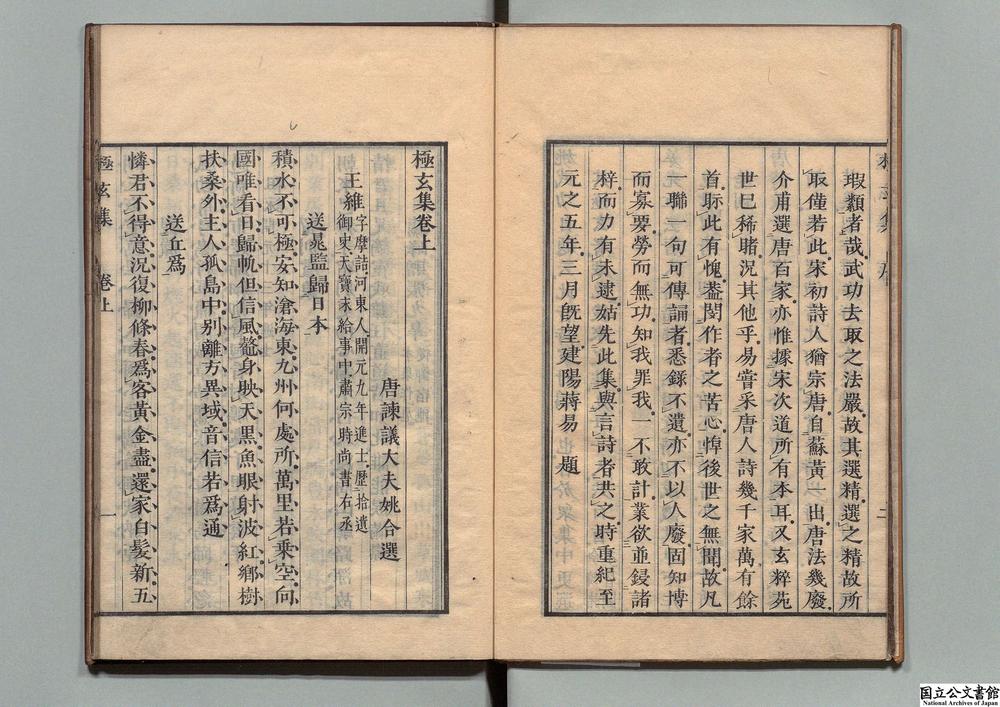 瑕纇者哉武功去取之法嚴故其選精選之精故所
取僅若此宋初詩人猶宗唐自蘇黃一出唐法幾廢
介甫選唐百家亦惟據宋次道所有本耳又玄粹苑
世已稀睹況其他乎易嘗采唐人詩幾千家萬有餘
首眎此有愧葢閔作者之苦心悼後世之無聞故凡
一聯一句可傳誦者悉錄不遺亦不以人廢固知博
而寡要勞而無功知我罪我一不敢計業欲並鋟諸
梓而力有未逮姑先此集與言詩者共之時重紀至
元之五年三月旣望建陽蔣易題
極玄集卷上
唐諫議大夫姚合選
王維字摩詰河東人開元九年進士歷拾遺
御史天寶末給事中肅宗時尚書右丞
送晁監歸日本
積水不可極安知滄海東九州何處所萬里若乘空向
國唯看日歸帆但信風鼇身映天黑魚眼射波紅鄉樹
扶桑外主人孤島中別離方異域音信若爲通
送丘爲
憐君不得意況復柳條春爲客黃金盡還家白髮新五
極玄集 卷上 一
国立公文書館
National Archives of Japan